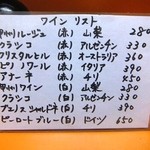 ワイン リスト
甲州ルージュ (赤) 山梨 280
クラシコ (赤) アルゼンチン 330
クリスタルヒル (赤) オーストラリア 360
ピノノワール (赤) イタリア 390
アナーキ (赤) チリ 450
甲州 (白) 山梨 280
クラシコ (白) アルゼンチン 330
シャルドネ (白) チリ 390
ピーロート ブルー (白) ドイツ 650